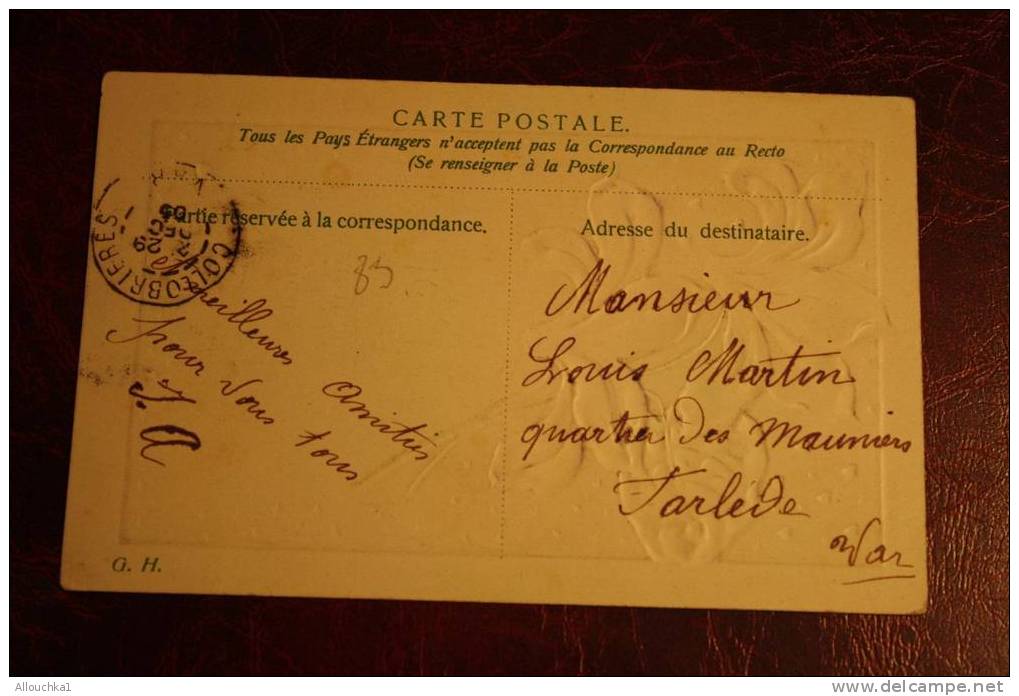 CARTE POSTALE.
Tous les Pays Étrangers n'acceptent pas la Correspondance au Recto
(Se renseigner à la Poste)
Partie réservée à la correspondance.
Adresse du destinataire.
COLLOBRIÈRES
83
meilleures amitiés
pour vous tous
J. A
Monsieur
Louis Martin
quartier des Mauniers
Farlède
Var
G. H.
Allouchka1
www.delcampe.net